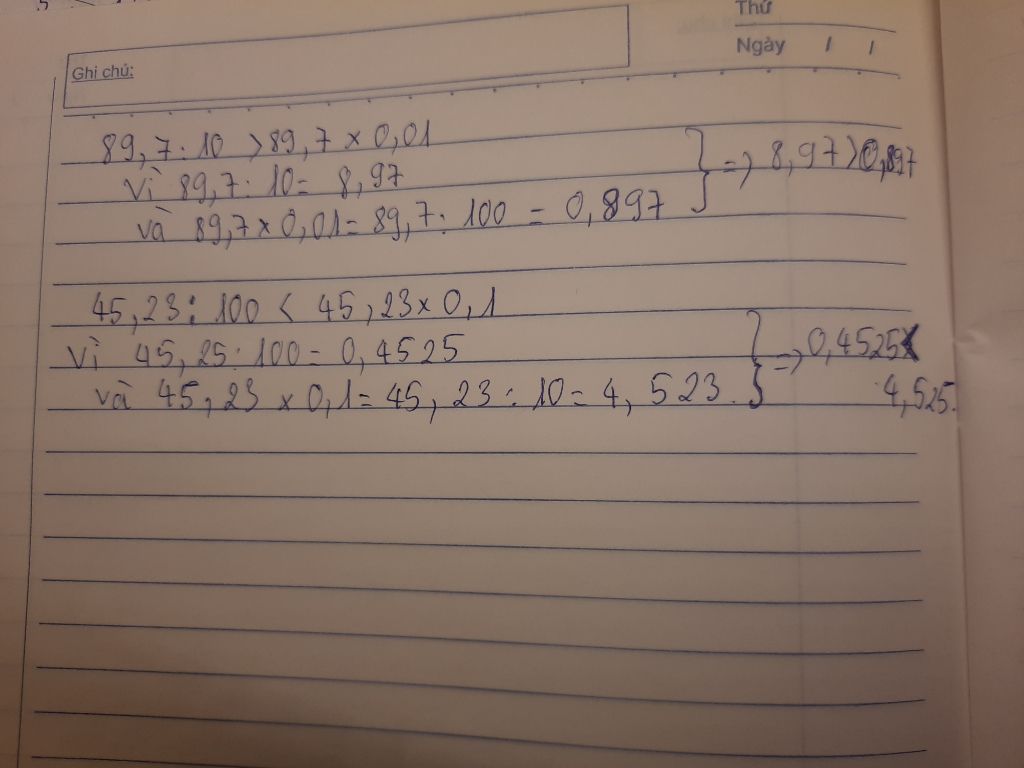 Thứ
Ngày / /
Ghi chú:
89,7 : 10 > 89,7 x 0,01
Vì 89,7 : 10 = 8,97
và 89,7 x 0,01 = 89,7 : 100 = 0,897 } => 8,97 > 0,897
45,23 : 100 < 45,23 x 0,1
Vì 45,25 : 100 = 0,4525
và 45,23 x 0,1 = 45,23 : 10 = 4,523. } => 0,4525 <
4,525.